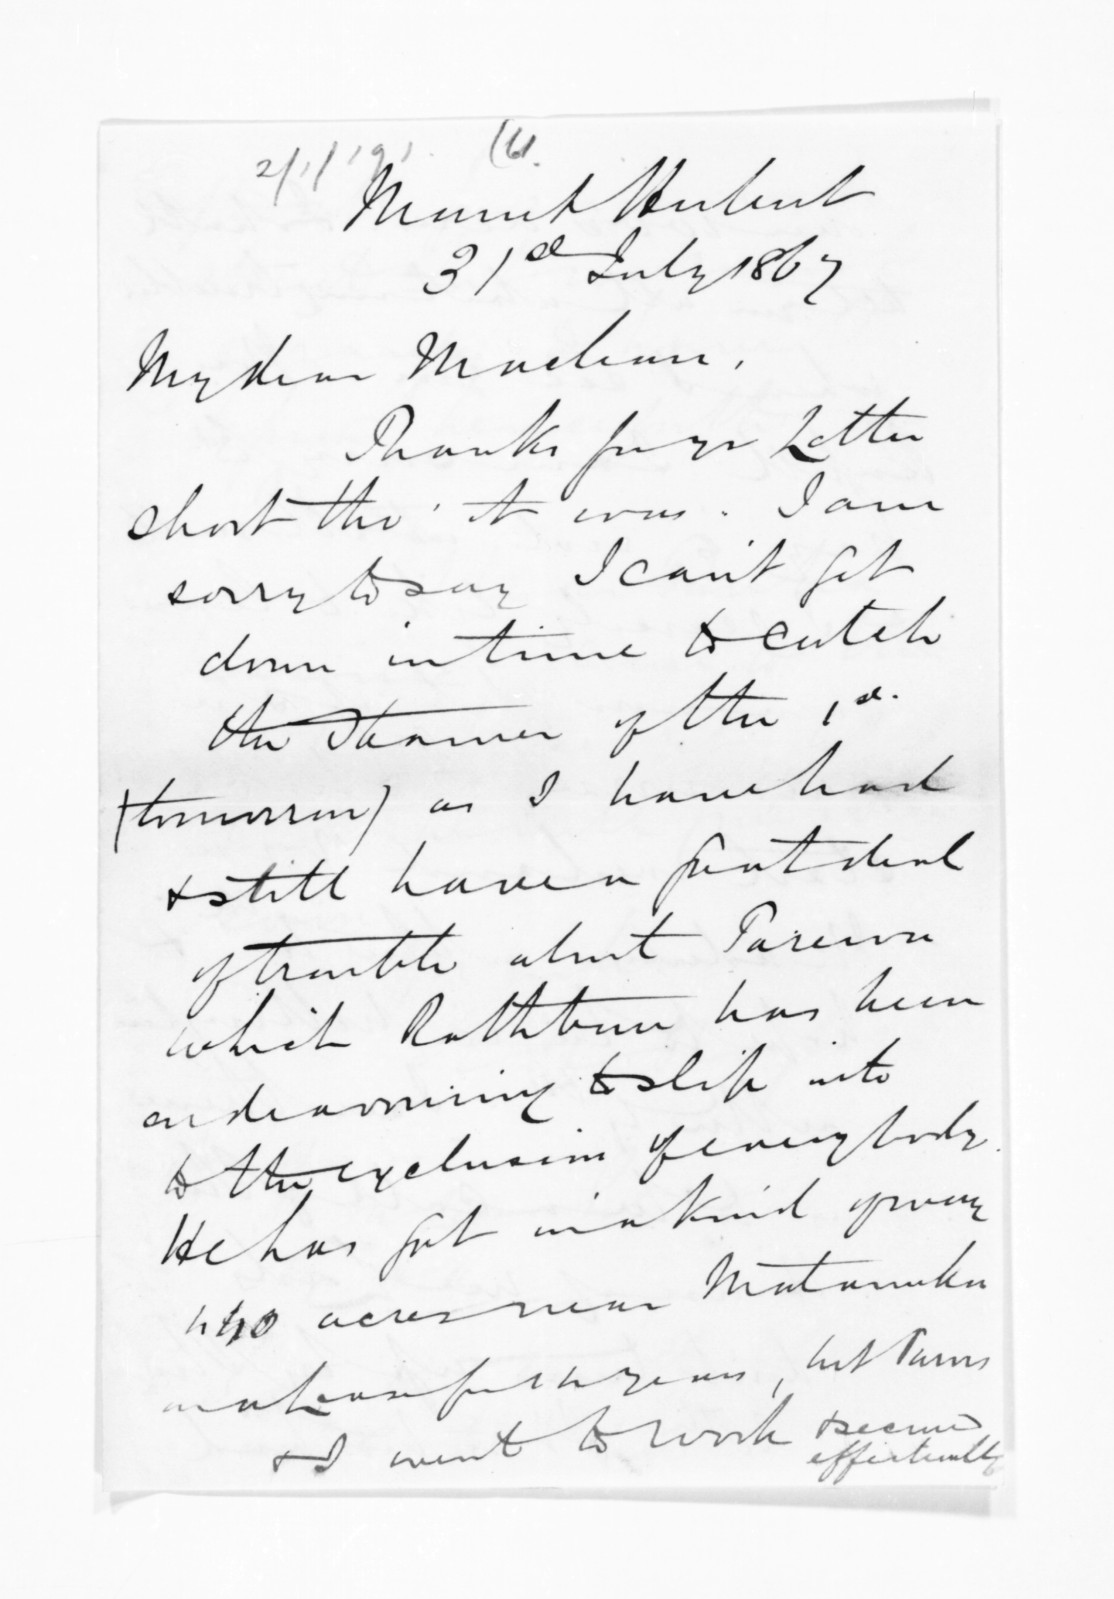 2/1/191. (61.
Mount Herbert
31st July 1867
My dear Maclean,
Thanks for yr Letter
short tho' it was. I am
sorry to say I can't get
down in time to catch
the Steamer of the 1st.
(tomorrow) as I have had
& still have a great deal
of trouble about Parewa
which Rathbone has been
endeavouring to slip into
to the exclusion of everybody.
He has got in a kind of way
440 acres near
on a Lease for years, but Purvis
& I went to work & secured
effectually